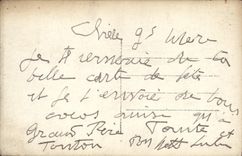 Chère gd Mère
Je te remercie de ta
belle carte de fête
et je t'envoie de bons
ainsi qu'à
Grand Père Tante et
Tonton ton petit